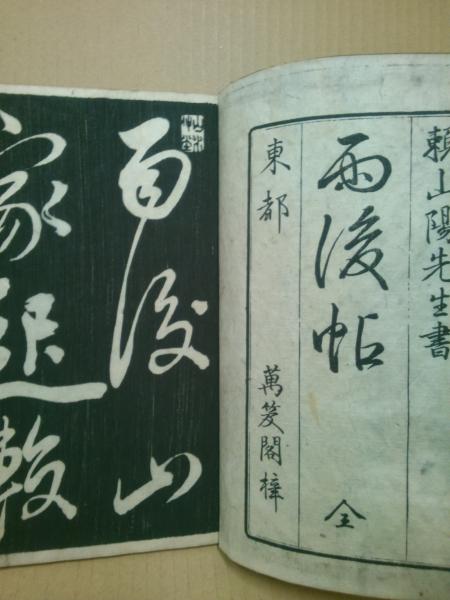 頼山陽先生書
雨後帖
全
東都 萬笈閣梓
雨後山
家起数